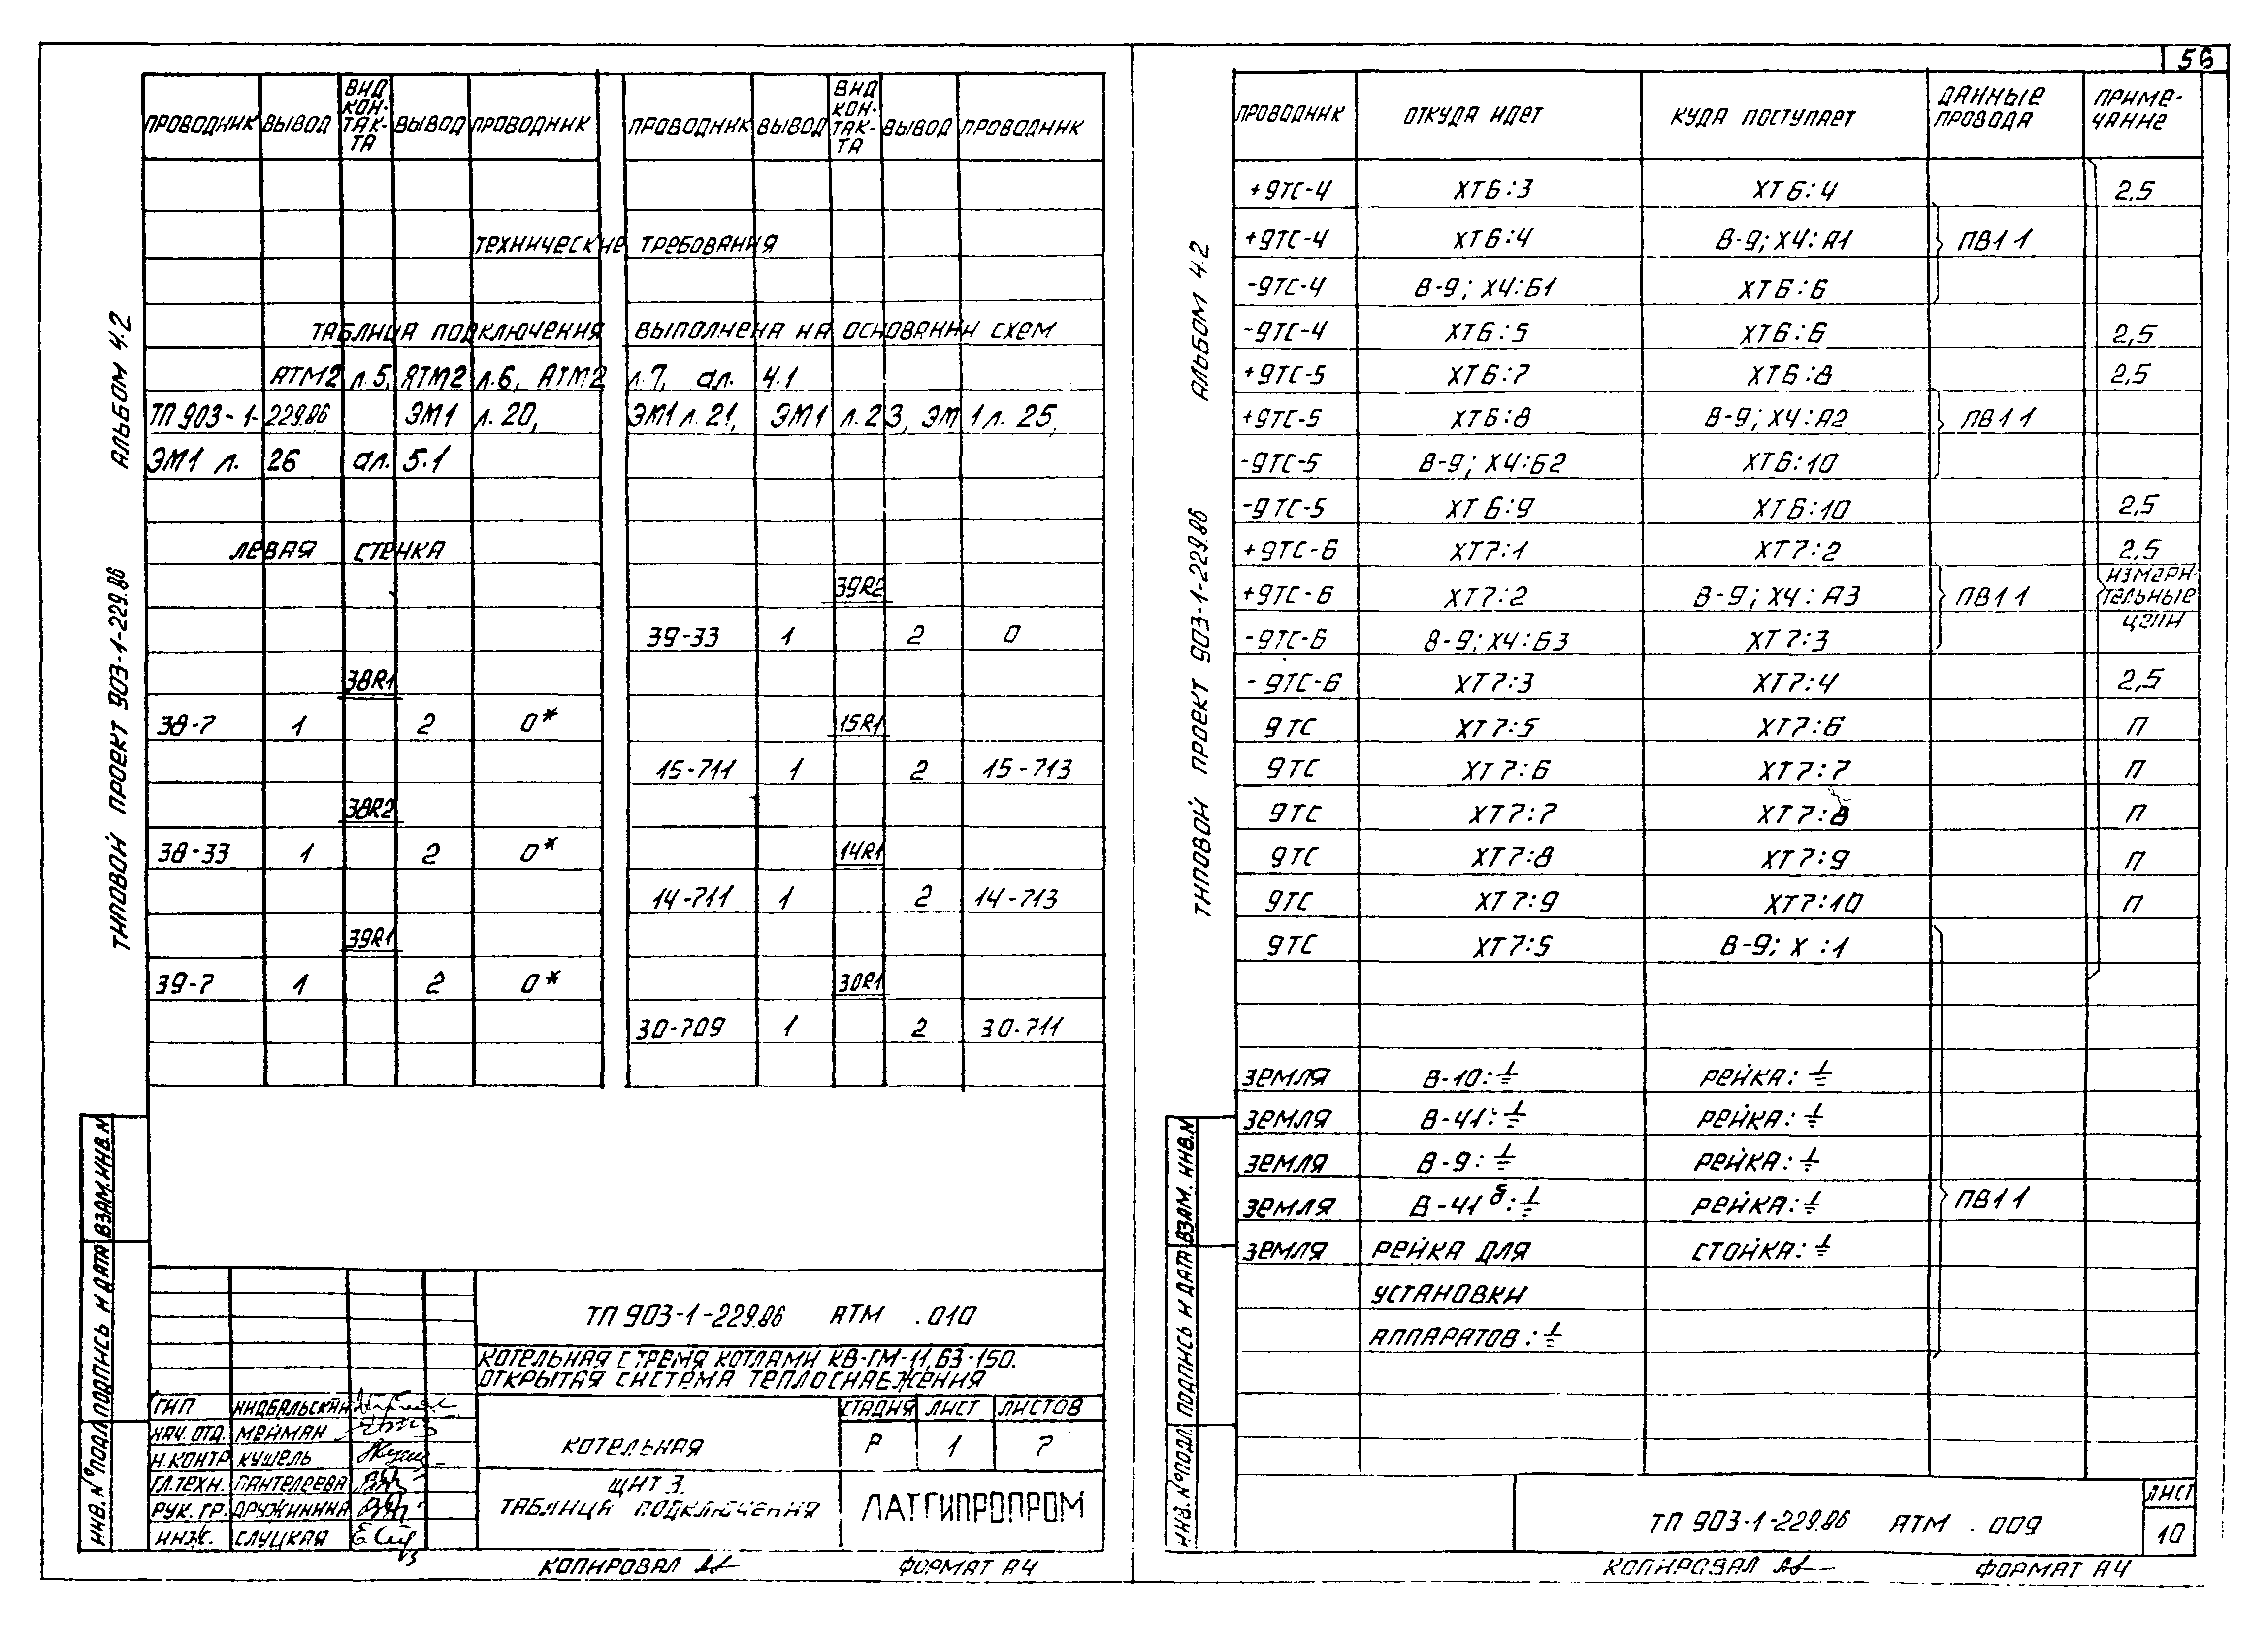 56
ПРОВОДНИК ВЫВОД ВИД КОН- ТАК- ТА ВЫВОД ПРОВОДНИК ПРОВОДНИК ВЫВОД ВИД КОН- ТАК- ТА ВЫВОД ПРОВОДНИК
ТЕХНИЧЕСКИЕ ТРЕБОВАНИЯ
ТАБЛИЦА ПОДКЛЮЧЕНИЯ ВЫПОЛНЕНА НА ОСНОВАНИИ СХЕМ
АТМ2 л.5, АТМ2 л.6, АТМ2 л.7, ал. 4.1
ТП 903-1-229.86 ЭМ1 л. 20, ЭМ1 л. 21, ЭМ1 л. 23, ЭМ1 л. 25,
ЭМ1 л. 26 ал. 5.1
ЛЕВАЯ СТЕНКА
38R1
38-7 1 2 0*
38R2
38-33 1 2 0*
39R1
39-7 1 2 0*
39R2
39-33 1 2 0
15R1
15-711 1 2 15-713
14R1
14-711 1 2 14-713
30R1
30-709 1 2 30-711
АЛЬБОМ 4.2
ТИПОВОЙ ПРОЕКТ 903-1-229.86
ИНВ. № ПОДЛ. ПОДПИСЬ И ДАТА ВЗАМ. ИНВ. №
ТП 903-1-229.86 АТМ .010
КОТЕЛЬНАЯ С ТРЕМЯ КОТЛАМИ КВ-ГМ-11,63-150.
ОТКРЫТАЯ СИСТЕМА ТЕПЛОСНАБЖЕНИЯ
ГИП
НАЧ. ОТД. МЕЙМАН
Н.КОНТР КУШЕЛЬ
ГЛ.ТЕХН. ПАНТЕЛЕЕВА
РУК. ГР. ДРУЖИНИНА
ИНЖ. СЛУЦКАЯ
КОТЕЛЬНАЯ
СТАДИЯ ЛИСТ ЛИСТОВ
Р 1 7
ЩИТ 3.
ТАБЛИЦА ПОДКЛЮЧЕНИЯ
ЛАТГИПРОПРОМ
КОПИРОВАЛ ФОРМАТ А4
ПРОВОДНИК ОТКУДА ИДЕТ КУДА ПОСТУПАЕТ ДАННЫЕ ПРОВОДА ПРИМЕ- ЧАНИЕ
+9ТС-4 ХТ6:3 ХТ6:4 2,5
+9ТС-4 ХТ6:4 В-9; Х4:А1 ПВ1 1
-9ТС-4 В-9; Х4:Б1 ХТ6:6
-9ТС-4 ХТ6:5 ХТ6:6 2,5
+9ТС-5 ХТ6:7 ХТ6:8 2,5
+9ТС-5 ХТ6:8 В-9; Х4:А2 ПВ1 1
-9ТС-5 В-9; Х4:Б2 ХТ6:10
-9ТС-5 ХТ6:9 ХТ6:10 2,5
+9ТС-6 ХТ7:1 ХТ7:2 2,5
+9ТС-6 ХТ7:2 В-9; Х4:А3 ПВ1 1
ИЗМЕРИ-
ТЕЛЬНЫЕ
ЦЕПИ
-9ТС-6 В-9; Х4:Б3 ХТ7:3
-9ТС-6 ХТ7:3 ХТ7:4 2,5
9ТС ХТ7:5 ХТ7:6 П
9ТС ХТ7:6 ХТ7:7 П
9ТС ХТ7:7 ХТ7:8 П
9ТС ХТ7:8 ХТ7:9 П
9ТС ХТ7:9 ХТ7:10 П
9ТС ХТ7:5 В-9; Х :1
ЗЕМЛЯ В-10:⏚ РЕЙКА:⏚
ЗЕМЛЯ В-41:⏚ РЕЙКА:⏚
ЗЕМЛЯ В-9:⏚ РЕЙКА:⏚
ЗЕМЛЯ В-41б:⏚ РЕЙКА:⏚ ПВ1 1
ЗЕМЛЯ РЕЙКА ДЛЯ СТОЙКА:⏚
УСТАНОВКИ
АППАРАТОВ:⏚
АЛЬБОМ 4.2
ТИПОВОЙ ПРОЕКТ 903-1-229.86
ИНВ. № ПОДЛ. ПОДПИСЬ И ДАТА ВЗАМ. ИНВ. №
ТП 903-1-229.86 АТМ .009
ЛИСТ
10
КОПИРОВАЛ ФОРМАТ А4